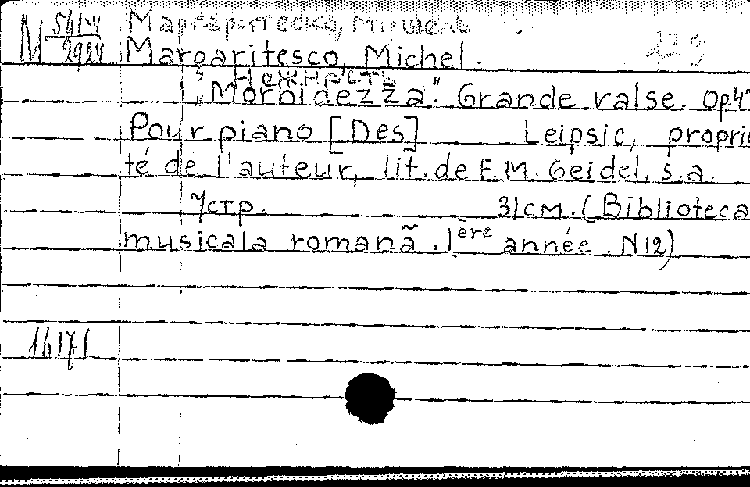 Маргаритеско, Мишель
Margaritesco, Michel.
Нежность
"Morbidezza". Grande valse. Op. 47
Pour piano [Des] Leipsic, proprié
té de l'auteur, lit. de F.M. Geidel, s.a.
7 стр. 31 см. (Biblioteca
musicala romanã. 1ère année. N12)
M